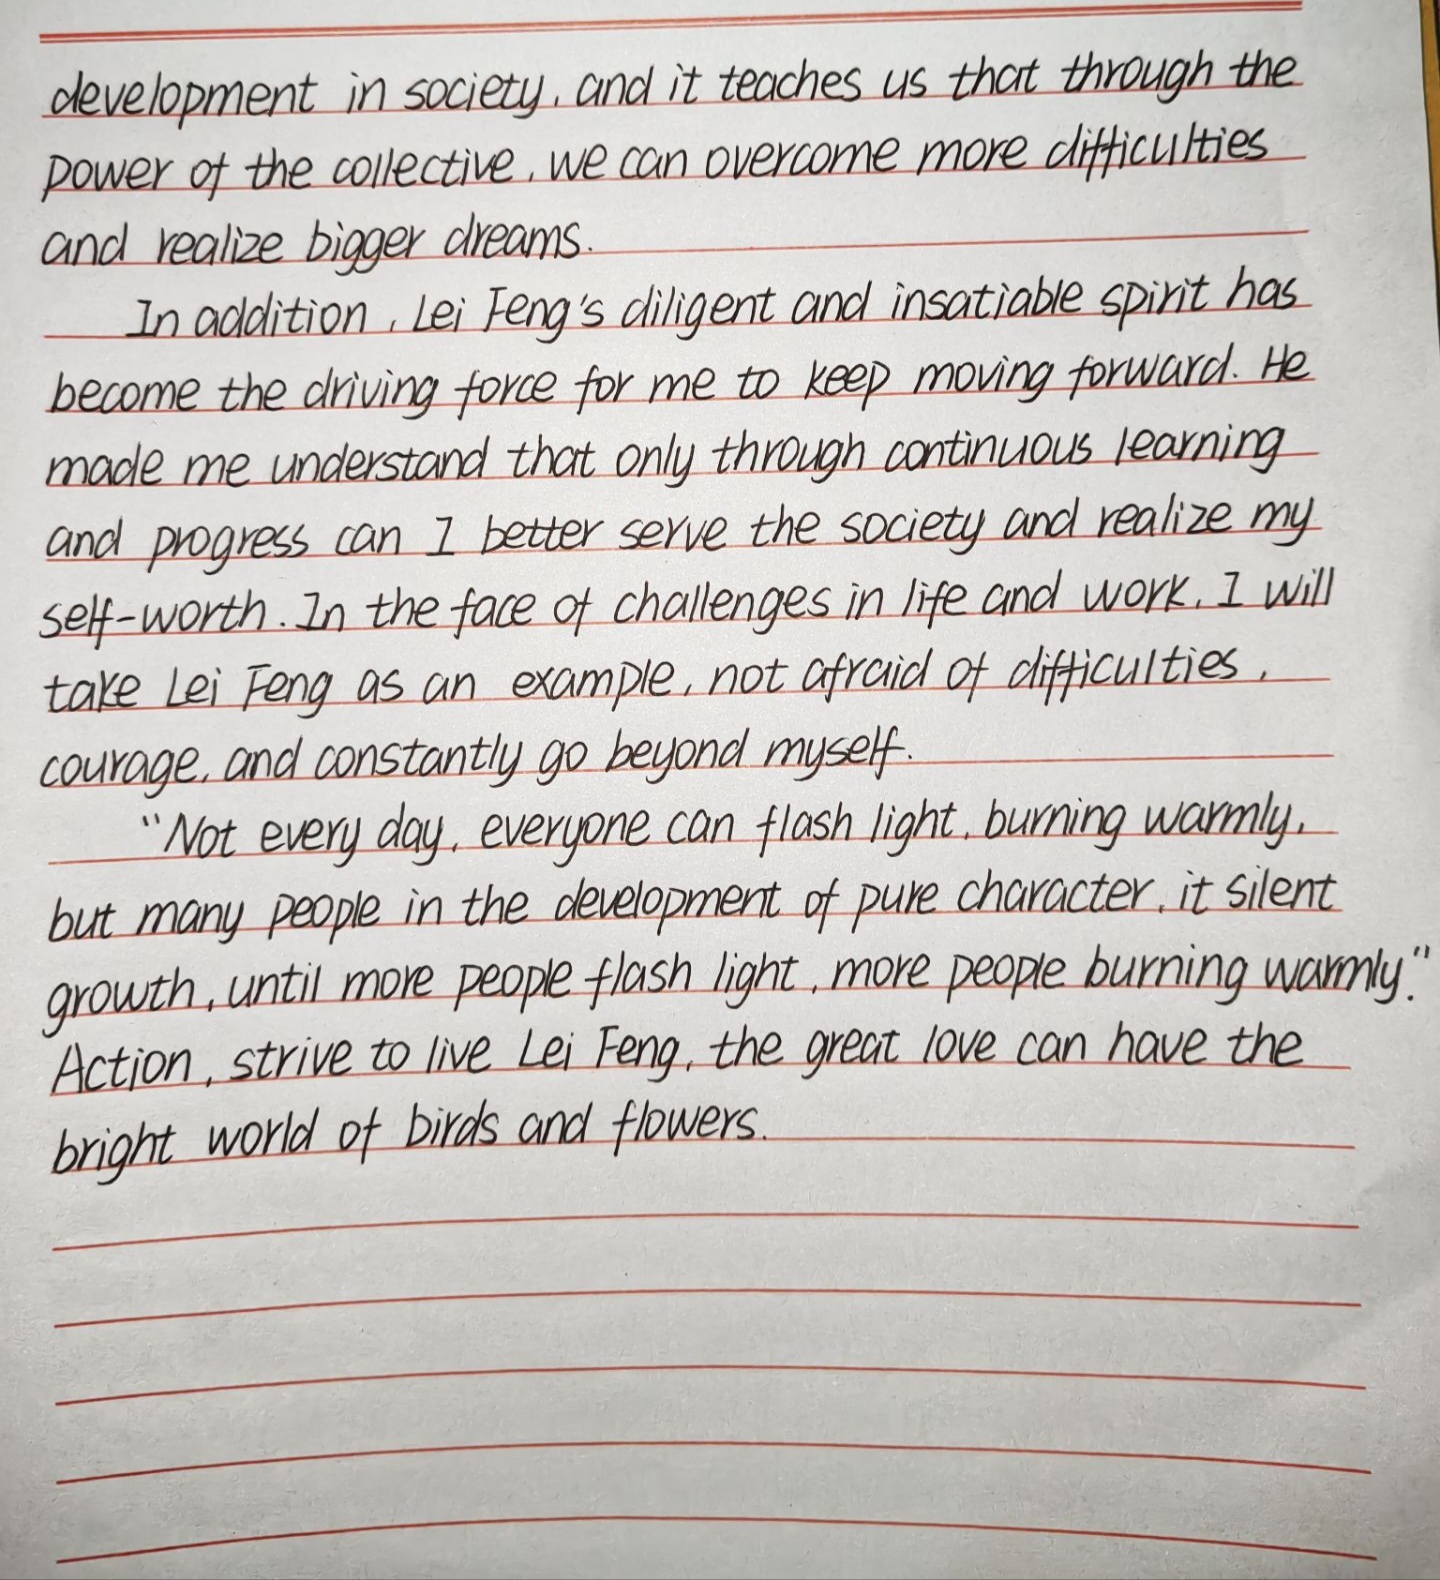 development in society, and it teaches us that through the
power of the collective, we can overcome more difficulties
and realize bigger dreams.
In addition, Lei Feng's diligent and insatiable spirit has
become the driving force for me to keep moving forward. He
made me understand that only through continuous learning
and progress can I better serve the society and realize my
self-worth. In the face of challenges in life and work, I will
take Lei Feng as an example, not afraid of difficulties,
courage, and constantly go beyond myself.
"Not every day, everyone can flash light, burning warmly,
but many people in the development of pure character, it silent
growth, until more people flash light, more people burning warmly."
Action, strive to live Lei Feng, the great love can have the
bright world of birds and flowers.